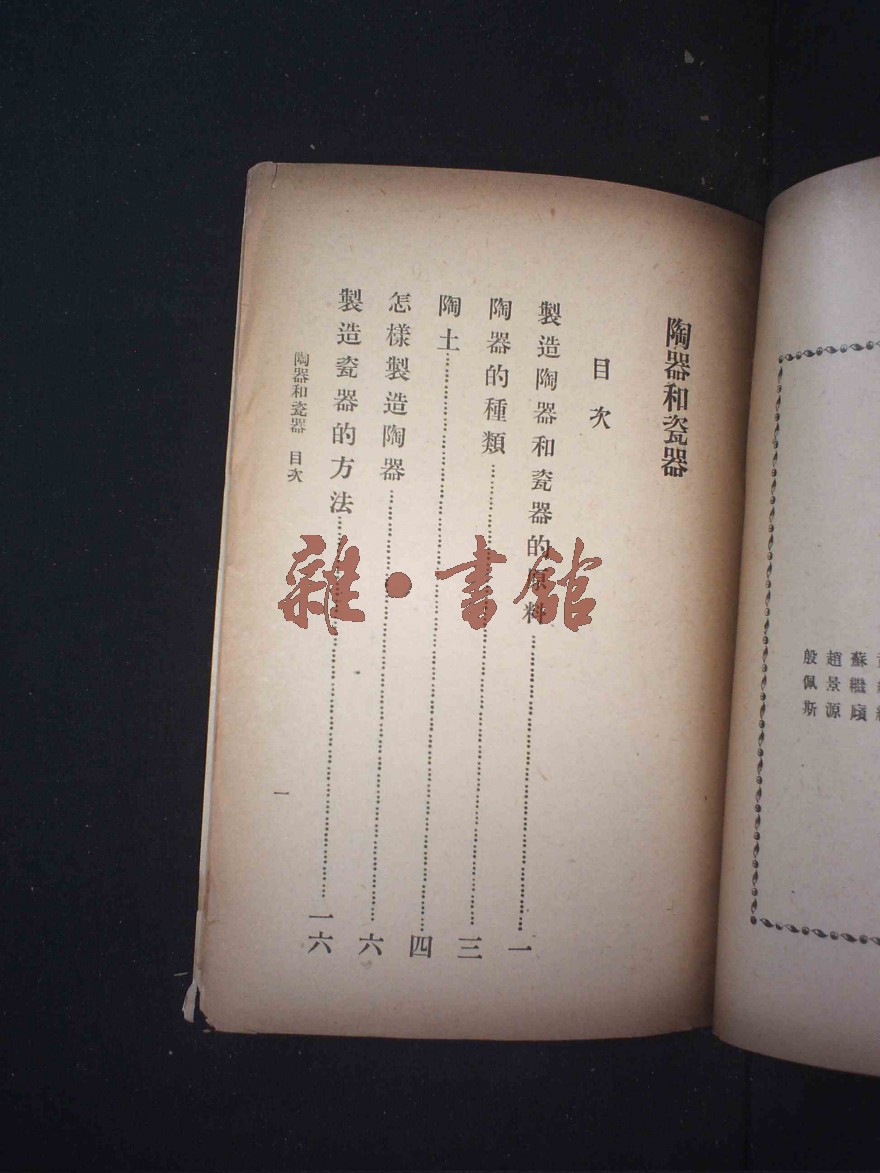 陶器和瓷器
目次
製造陶器和瓷器的原料……一
陶器的種類……三
陶土……四
怎樣製造陶器……六
製造瓷器的方法……一六
陶器和瓷器 目次
一
蘇繼廎
趙景源
殷佩斯
雜·書館